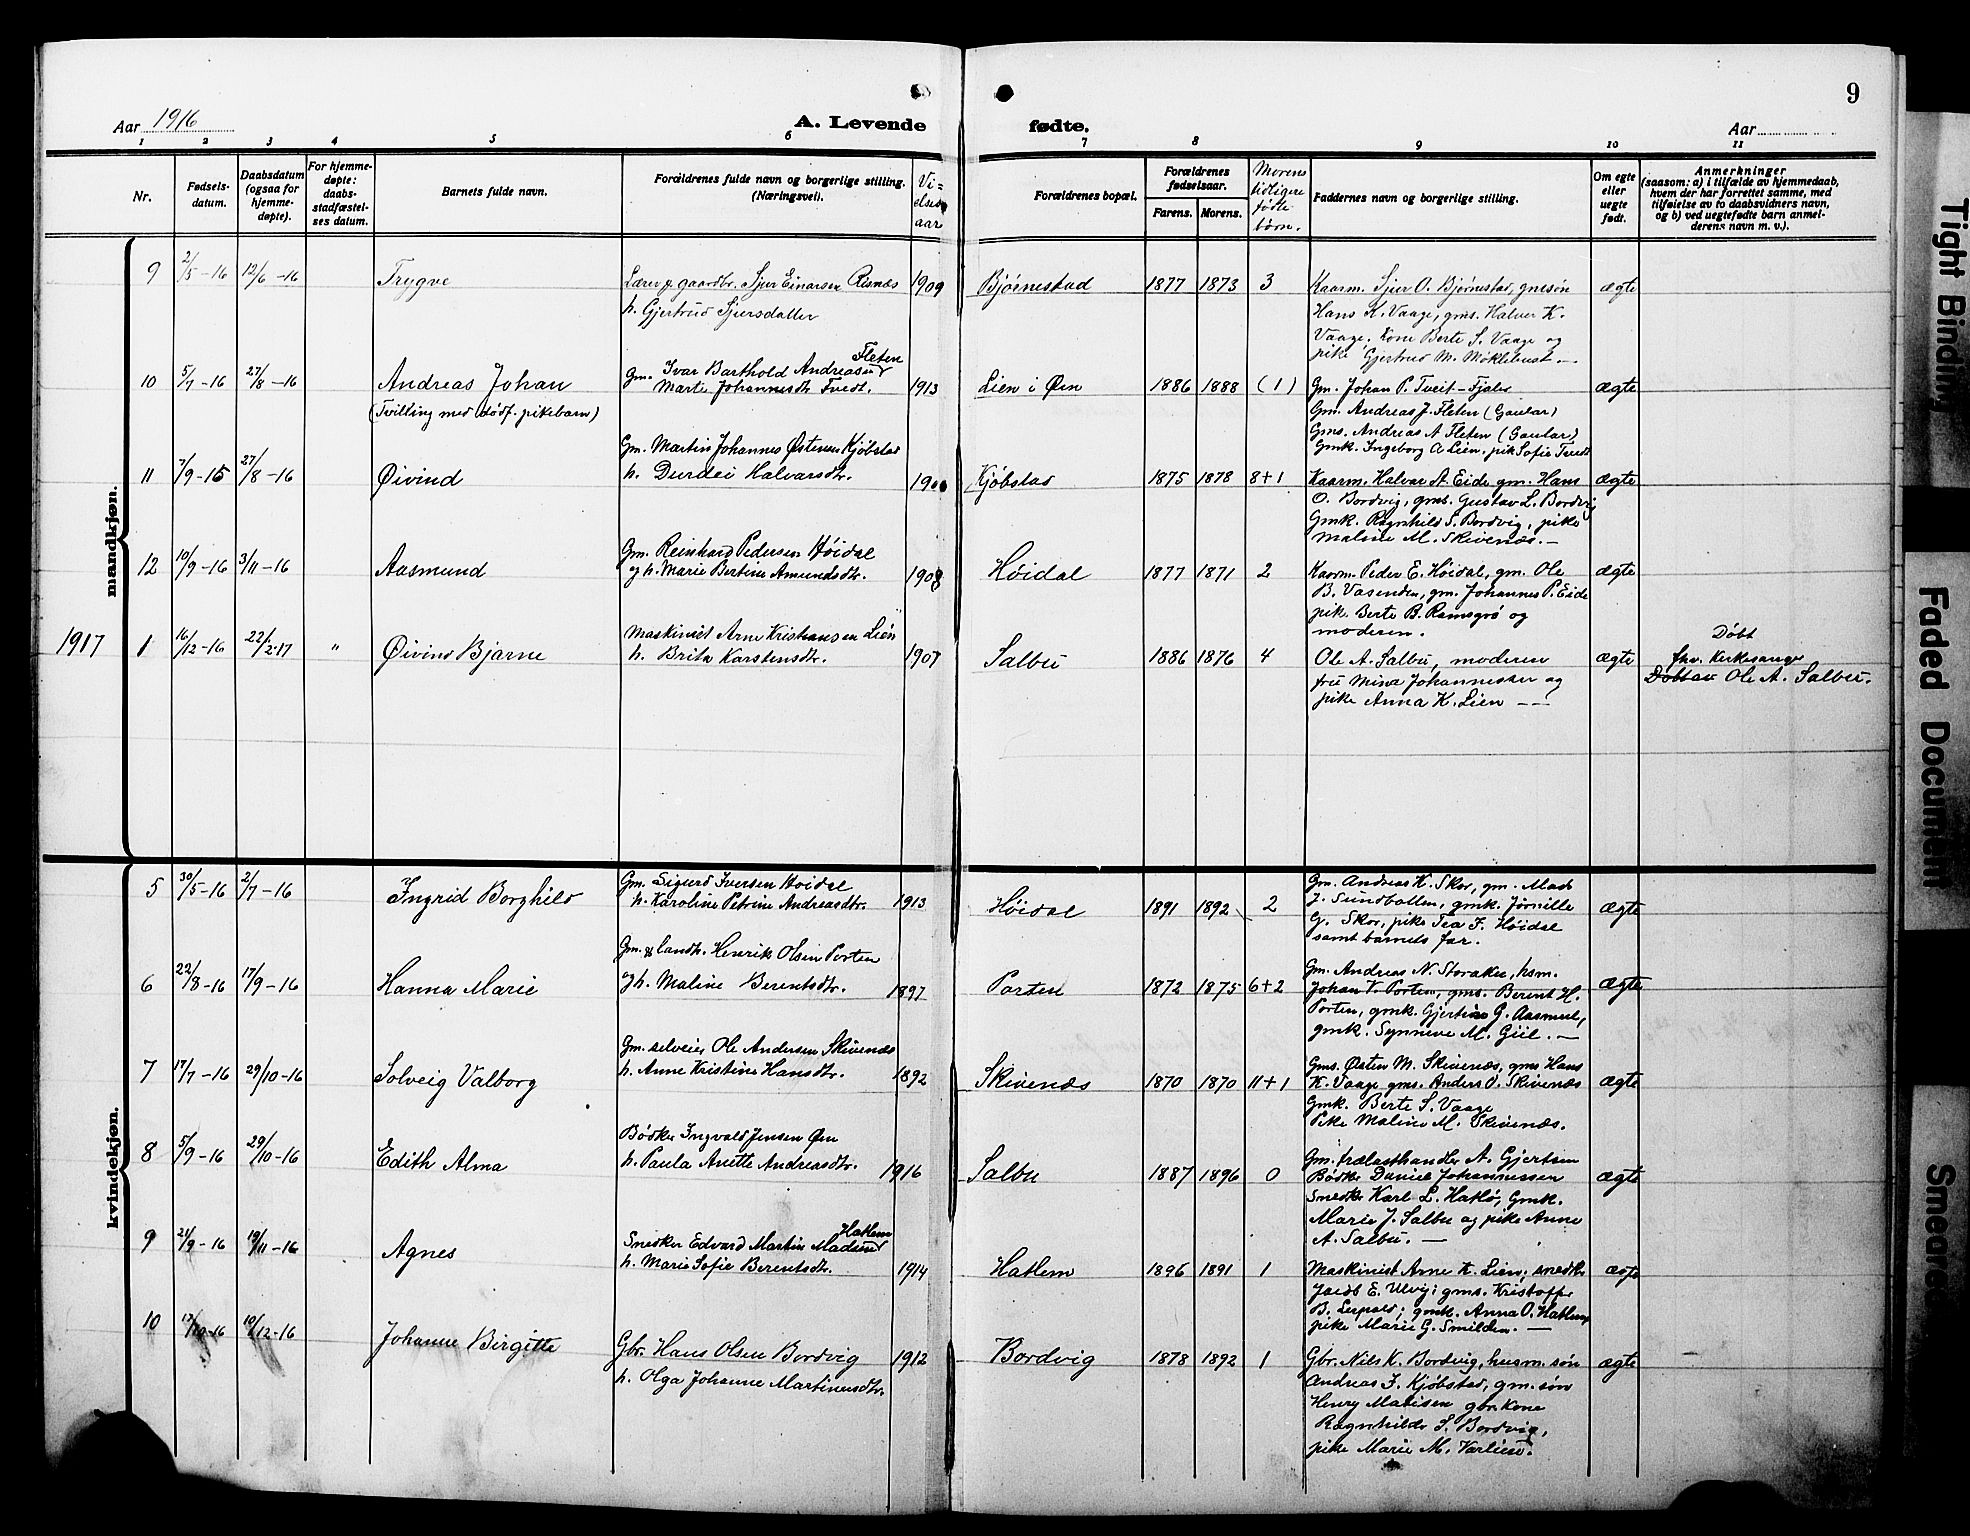 9
Aar 1916
A. Levende
fødte.
Aar
1 2 3 4 5 6 7 8 9 10 11
Nr.
Fødsels-
datum.
Daabsdatum
(ogsaa for
hjemme-
døpte).
For hjemme-
døpte:
daabs-
stadfæstel-
ses datum.
Barnets fulde navn.
Forældrenes fulde navn og borgerlige stilling.
(Næringsvei).
Vi-
elses-
aar
Forældrenes bopæl.
Forældrenes
fødselsaar.
Farens. Morens.
Morens
tidligere
fødte
børn.
Faddernes navn og borgerlige stilling.
Om egte
eller
uegte
født.
Anmerkninger
(saasom: a) i tilfælde av hjemmedaab,
hvem der har forrettet samme, med
tilføielse av to daabsvidners navn,
og b) ved uegtefødte barn anmel-
derens navn m. v.).
mandkjøn.
9 2/5-16 12/6-16 Trygve
Lærer & gaardbr. Sjur Einarsen Risnæs
h. Gjertrud Sjursdatter
1909 Bjørnestad 1877 1873 3
Kaarm. Sjur O. Bjørnestad, gmsøn
Hans K. Vaage, gms. Halvor K.
Vaage, Kone Berte S. Vaage og
pike Gjertrud M. Møklebust.—
ægte
10 5/7-16 27/8-16 Andreas Johan
(Tvilling med dødf. pikebarn)
Fleten
Gm. Ivar Barthold Andreasen
Marte Johannesdtr. Tvedt.
1913 Lien i Øen 1886 1888 (1)
Gm. Johan P. Tveit - Fjaler
Gm. Andreas J. Fleten (Gaular)
Gms. Andreas A Fleten (Gaular)
Gmk. Ingeborg A Lien, pik Sofie Tvedt
ægte
11 27/8-16 Øivind
Gm. Martin Johannes Østensen Kjøbstad
h. Durdei Halvarsdtr.
Kjøbstad 1875 1878 8+1
Kaarm. Halvar A. Eide gm. Hans
O. Bordvig, gms. Gustav L. Bordvig
Gmk. Ragnhild S. Bordvig, pike
Maline M. Skivenæs.—
ægte
12 10/9-16 3/11-16 Aasmund
Gm. Reinhard Pedersen Høidal
og h. Marie Bertine Amundsdtr.
1908 Høidal 1877 1871 2
Kaarm. Peder E. Høidal, gm. Ole
B. Vasenden, gm. Johannes P. Eide
pike Berte B. Ramsgrø og
moderen.
ægte
1917 1 16/12-16 22/2-17 " Øivind Bjarne
Maskinist Arne Kristiansen Lien
h. Brita Karstensdtr.
1907 Salbu 1886 1876 4
Ole A. Salbu, moderen
fru Mina Johannessen og
pike Anna K. Lien — —
ægte
Døbt
fhv. Kirkesanger
Døbt av Ole A. Salbu.
kvindekjøn.
5 30/5-16 2/7-16 Ingrid Borghild
Gm. Sigurd Iversen Høidal
h. Karoline Petrine Andreasdtr.
1913 Høidal 1891 1892 2
Gm. Andreas K. Skor, gm. Mads
J. Sundbotten, gmk. Jørnille
G. Skor, pike Tea F. Høidal
samt barnets far.
ægte
6 22/8-16 17/9-16 Hanna Marie
Gm. & landh. Henrik Olsen Porten
og h. Maline Berentsdtr.
1897 Porten 1872 1875 6+2
Gm. Andreas N. Storaker, hsm.
Johan V. Porten, gms. Berent H.
Porten, gmk. Gjertine G. Aasmul,
gmk. Synneve M. Giil.—
ægte
7 17/7-16 29/10-16 Solveig Valborg
Gm. selveier Ole Andersen Skivenæs
h. Anne Kristine Hansdtr.
1892 Skivenæs 1870 1870 11+1
Gms. Østen M. Skivenæs, gms Hans
K. Vaage gms. Anders O. Skivenæs
Gmk. Berte S. Vaage
Pike Maline M. Skivenæs.
ægte
8 5/9-16 29/10-16 Edith Alma
Bødker Ingvald Jensen Øen
h. Paula Anette Andreasdtr.
1916 Salbu 1887 1896 0
Gm. trælasthandler A. Gjertsen
Bødker Daniel Johannessen
Snedker Karl L. Hatlø, Gmk.
Marie J. Salbu og pike Anne
A. Salbu.—
ægte
9 21/9-16 19/11-16 Agnes
Hatlem
Snedker Edvard Martin Madsen
h. Marie Sofie Berentsdtr.
1914 Hatlem 1896 1891 1
Maskinist Arne K. Lien, snedker
Jacob E. Ulvig gms. Kristoffer
B. Leypold; gmk. Anna O. Hatlem
pike Marie G. Smilden.—
ægte
10 17/10-16 10/12-16 Johanne Birgitte
Gbr. Hans Olsen Bordvig
h. Olga Johanne Martinusdtr.
1912 Bordvig 1878 1892 1
Gbr. Nils K. Bordvig, husm. søn
Andreas F. Kjøbstad, gm. søn
Henry Matisen gbr. Kone
Ragnhilde S. Bordvig,
pike Marie M. Varlien.
ægte
Tight Binding
Faded Document
Smeared